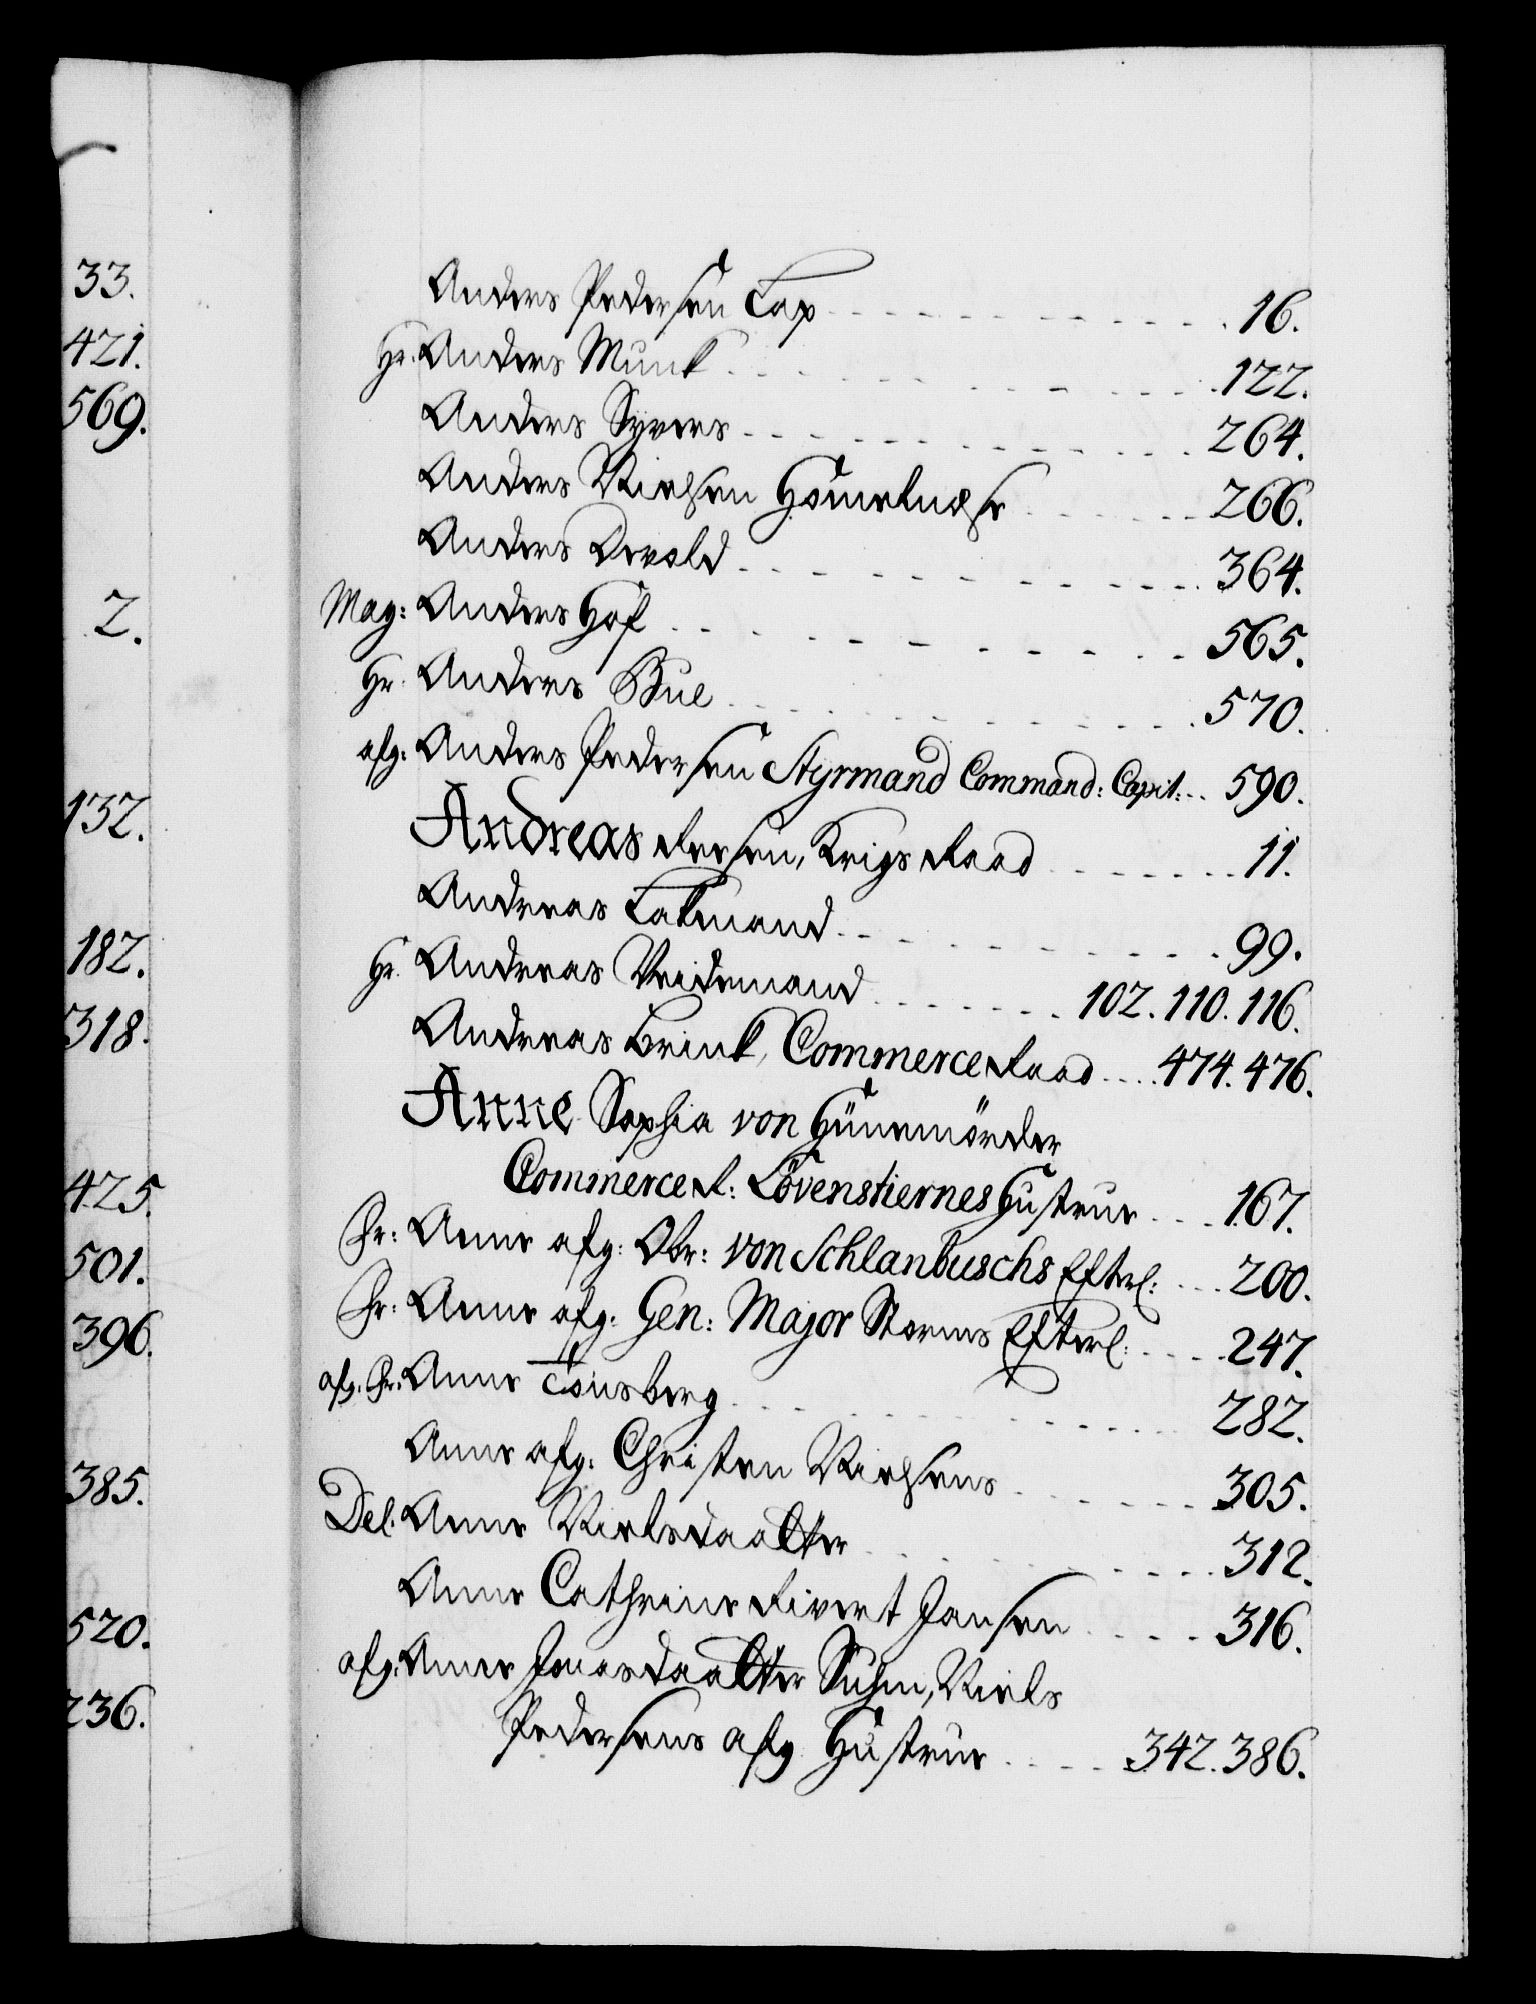 33.
421.
569.
2.
132.
182.
318.
425.
501.
396.
385.
520.
236.
Anders Pedersen Lap 16.
Hr. Anders Munk 122.
Anders Syvers 264.
Anders Nielsen 266.
Anders Devold 364.
Mag: Anders Hof 565.
Hr. Anders Bue 570.
afg: Anders Pedersen Styrmand Command: Capit: 590.
Andreas Krigs Raad 11.
Andreas Landmand 99.
Hr. Andreas Breidemand 102. 110. 116.
Andreas Brink, Commerce Raad 474. 476.
Anne Sophia von Hünemörder
Commerce R: Lövenstiernes Hustrue 167.
Fr: Anne afg: Obr: von Schlanbuschs Efterl: 200.
Fr: Anne afg: Gen: Major Storms Efterl: 247.
afg. Fr: Anne Tonsberg 282.
Anne afg: Christen Nielsens 305.
Del. Anne Nielsdaatter 312.
Anne Cathrine Sivert Jansen 316.
afg: Anne Jonasdaatter Suhm, Niels
Pedersens afg Hustrue 342. 386.